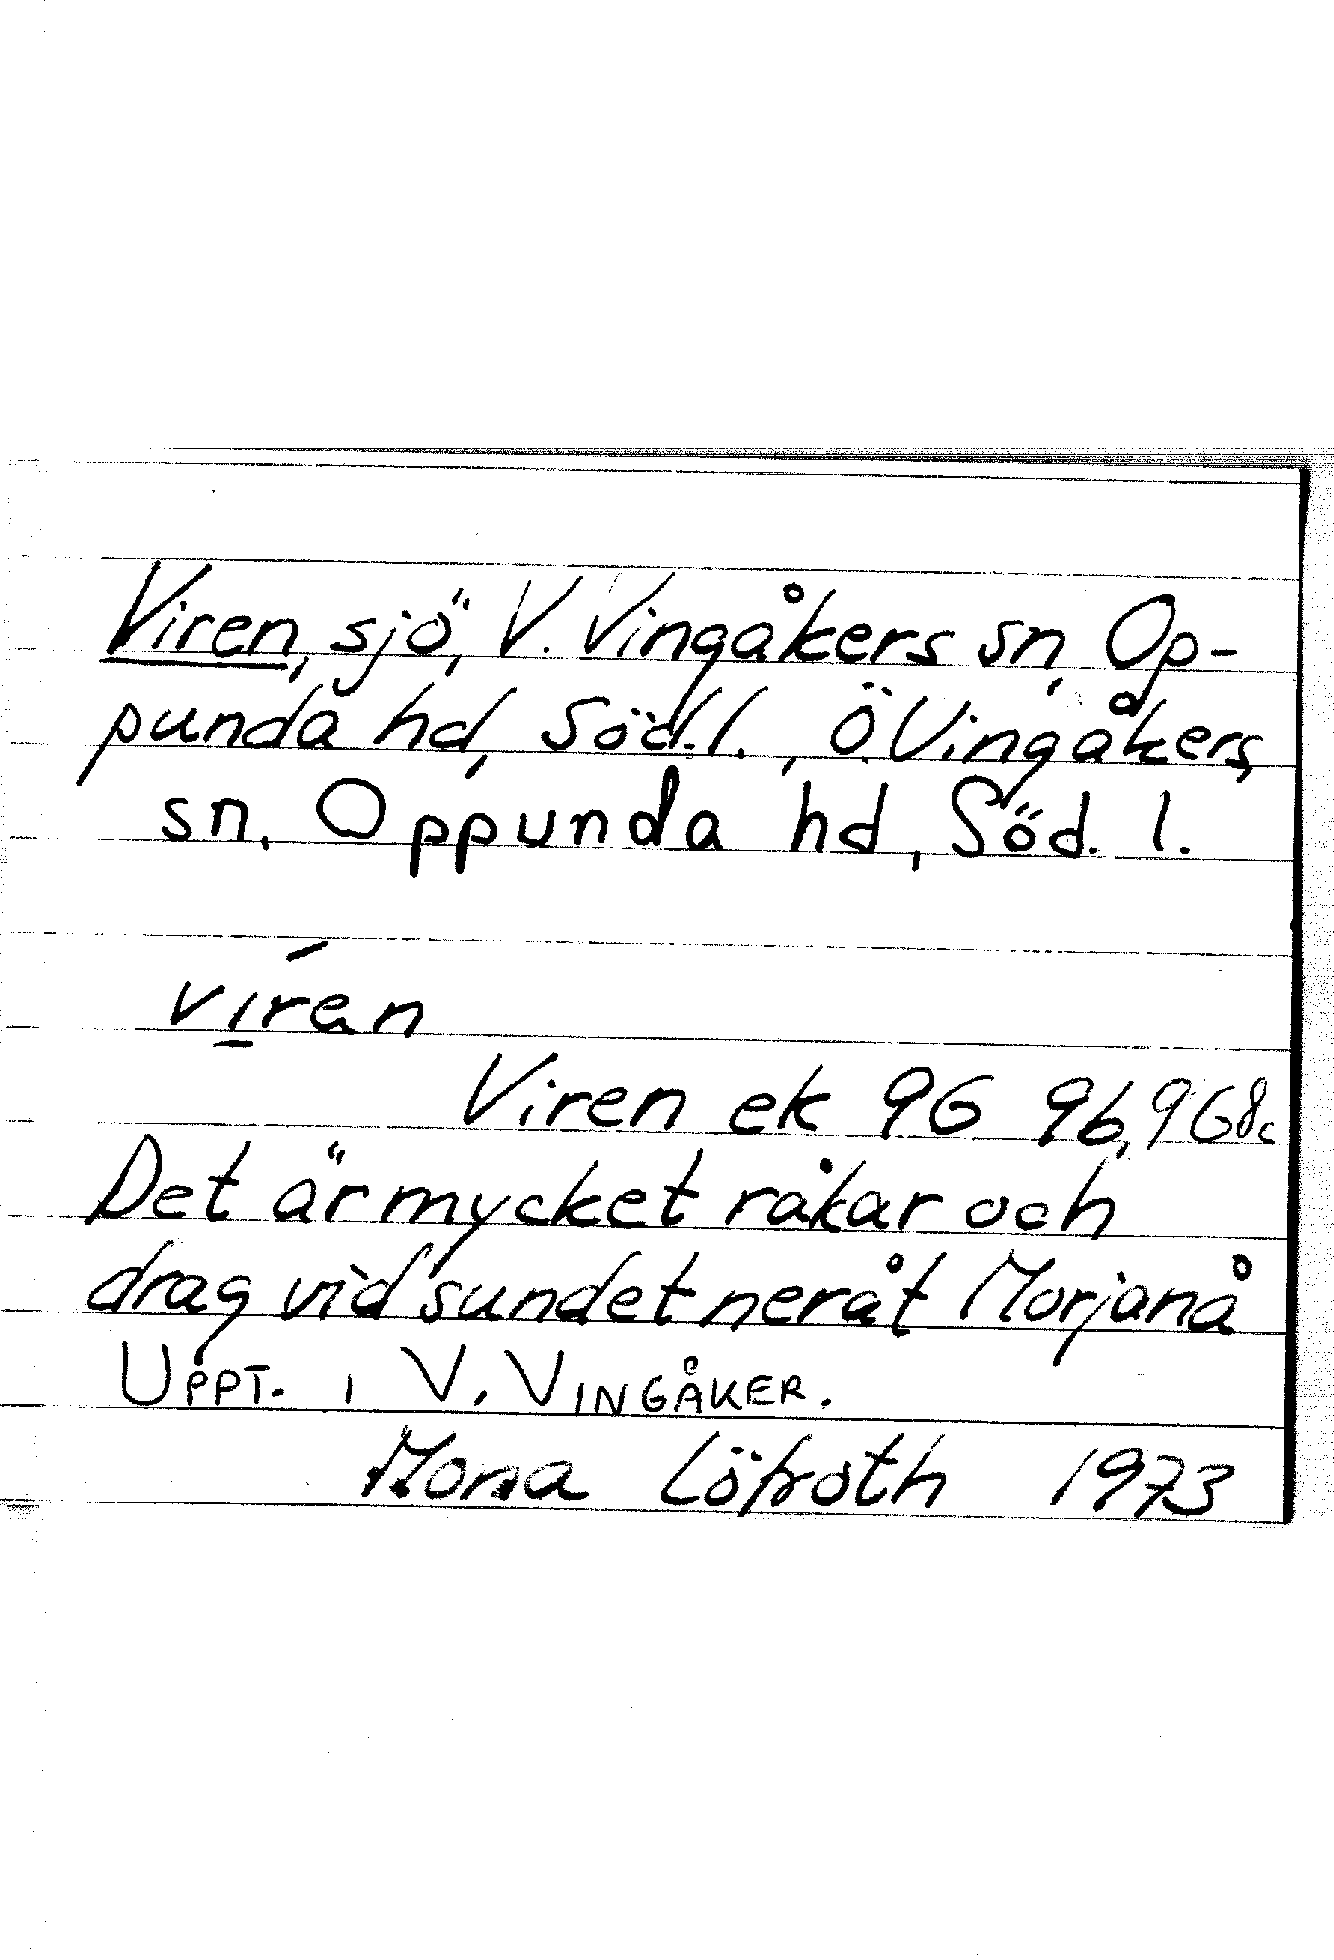 Viren, sjö, V. Vingåkers sn, Op-
punda hd, Söd. l., Ö Vingåkers,
sn, Oppunda hd, Söd. l.
víran
Viren ek 9G 9b, 9G8c
Det är mycket råkar och
drag vid sundet neråt Morjanå
UPPT. I V. VINGÅKER.
Mona Löfroth 1973